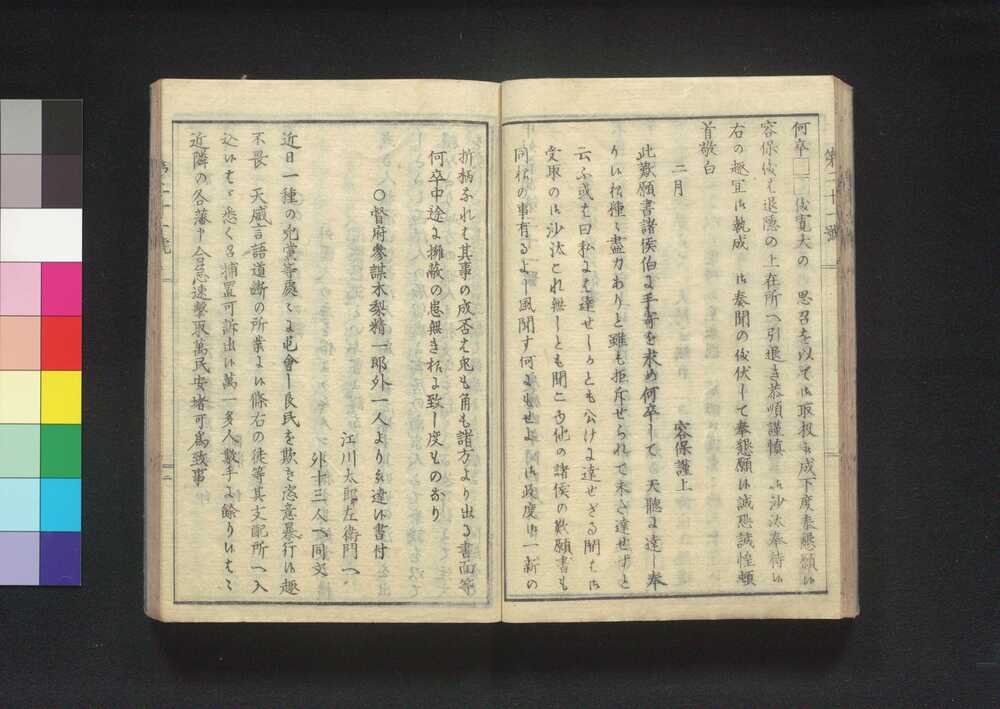 第二十一號
何卒 寛大の 思召を以て御取扱被成下度奉懇願候
容保儀も退隠の上在所へ引退き恭順謹慎 御沙汰奉待候
右の趣宜御執成 御奏聞の儀伏して奉懇願候誠恐誠惶頓
首敬白
二月 容保謹上
此歎願書諸侯伯に手寄を求め何卒して 天聽に達し奉
りい様種々盡力ありと雖も拒斥せられて未だ達せずと
云ふ或も曰私にも達せしかとも公けに達せざる間は御
受取の御沙汰これ無しとも聞こゆ他の諸侯の歎願書も
同様の事有るよし風聞す何よもせよ 御政度御一新の
折柄なれも其事の成否も兎も角も諸方より出る書面等
何卒中途に擁蔽の患無き様に致し度ものなり
○督府參謀木梨精一郎外一人より被達候書付
江川太郎左衛門へ
外十三人へ同文
近日一種の兇黨等處々に屯會し良民を欺き恣意暴行候趣
不畏 天威言語道斷の所業に候條右の徒等其支配所へ入
込候はゞ悉く召捕置可訴出候萬一多人數手に餘り候はゞ
近隣の各藩申合急速撃取萬民安堵可爲致事